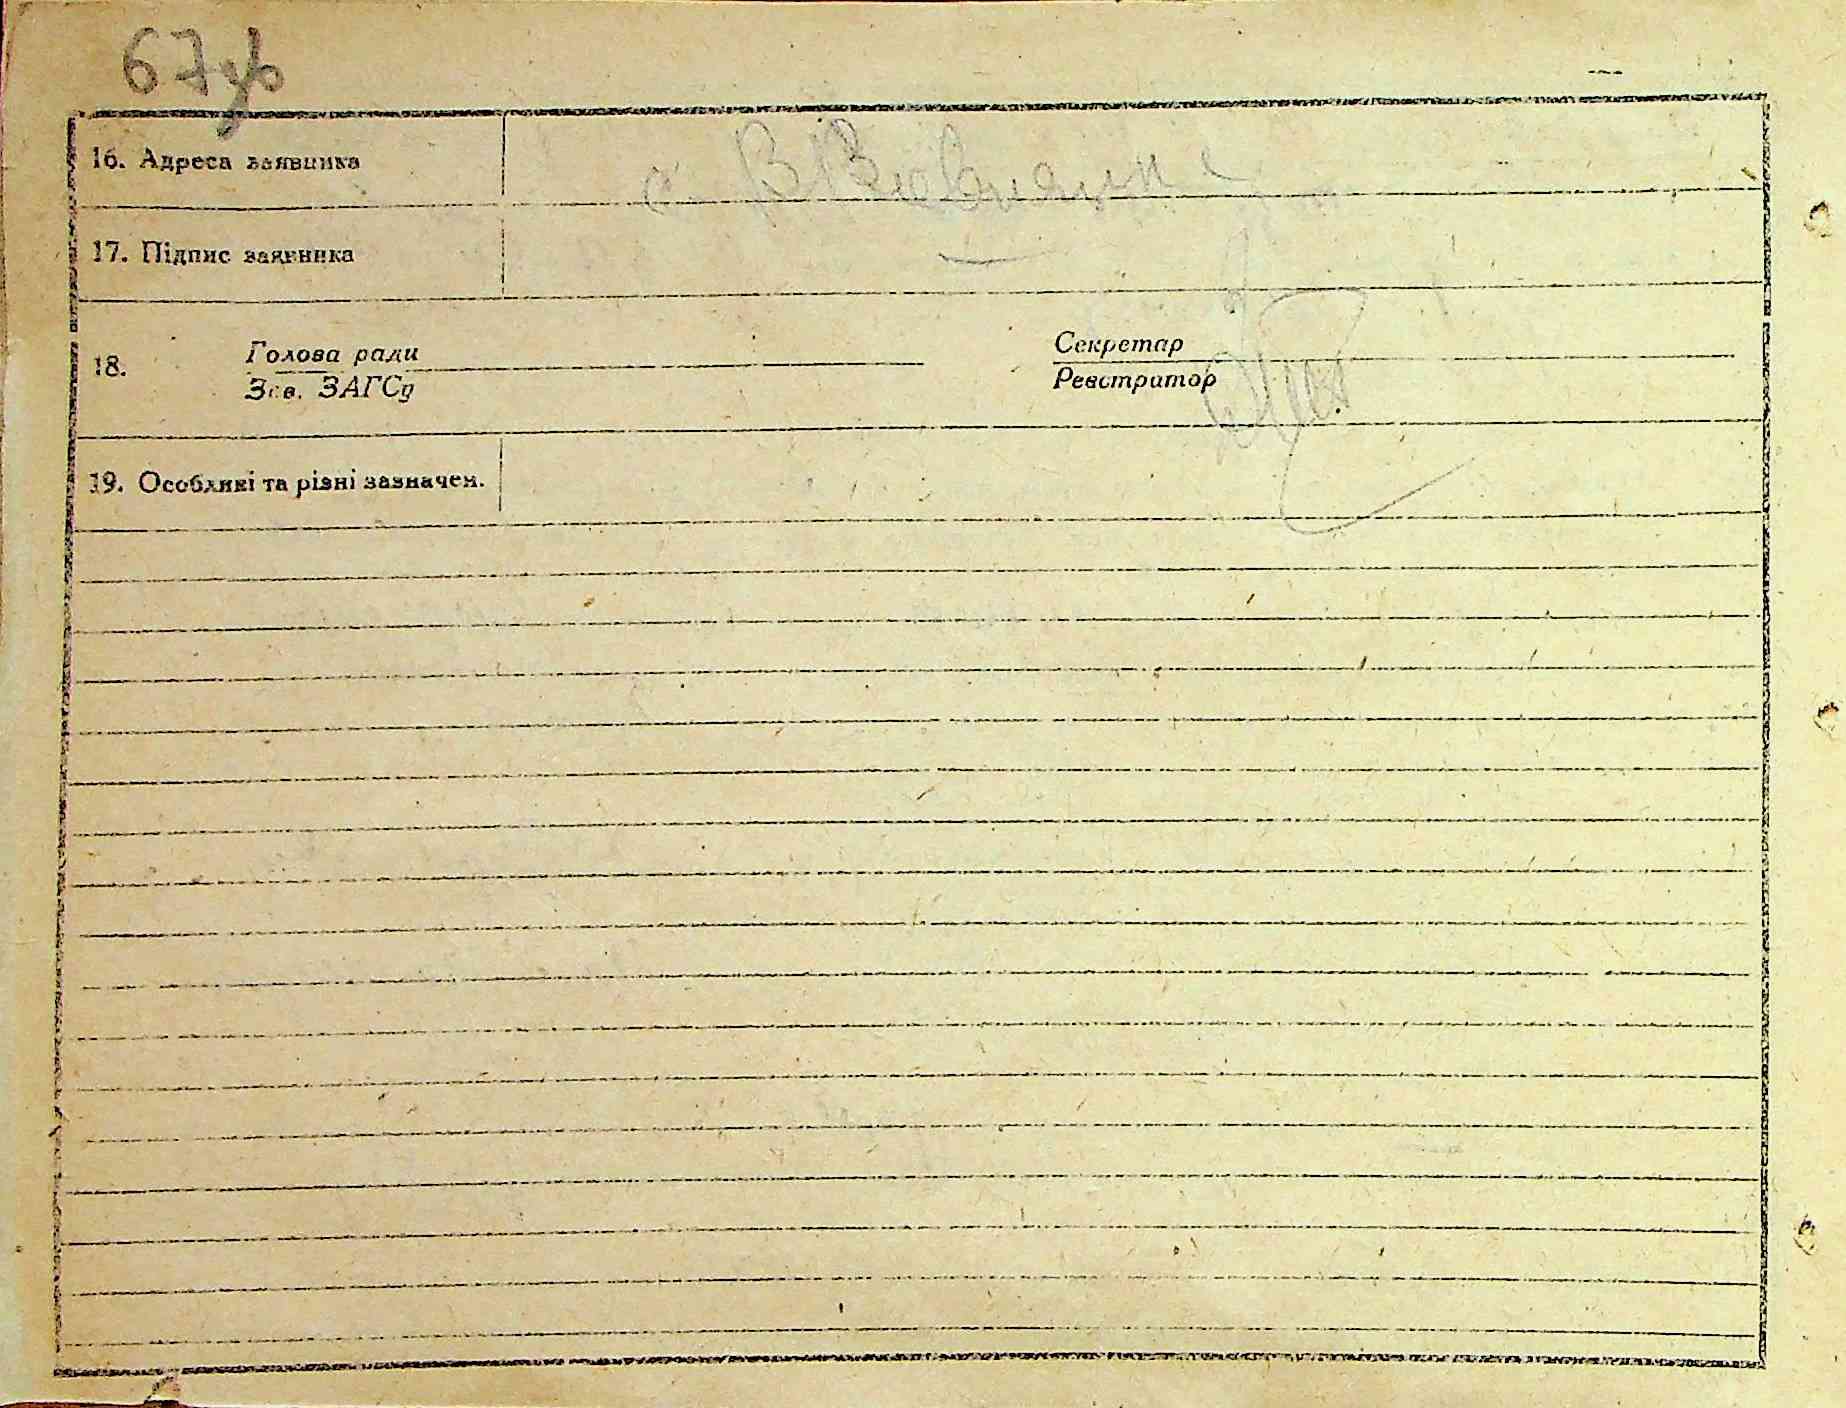 67зв
16. Адреса заявника с.
17. Підпис заявника —
18. Голова ради Секретар
Зав. ЗАГСу Реєстратор
19. Особливі та різні зазначен.